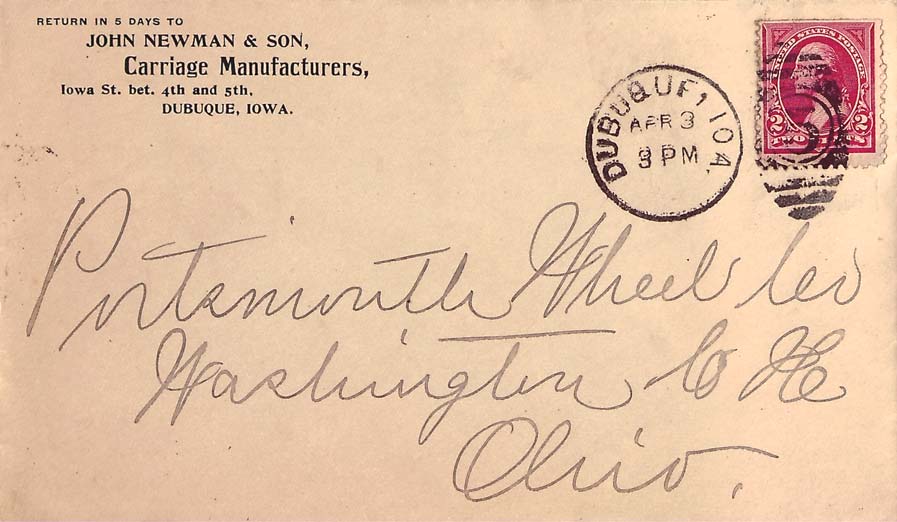 RETURN IN 5 DAYS TO
JOHN NEWMAN & SON,
Carriage Manufacturers,
Iowa St. bet. 4th and 5th.
DUBUQUE, IOWA.
DUBUQUE IOA.
APR 3
PM
UNITED STATES POSTAGE
2 2
Portsmouth Wheel Co
Washington C H
Ohio.